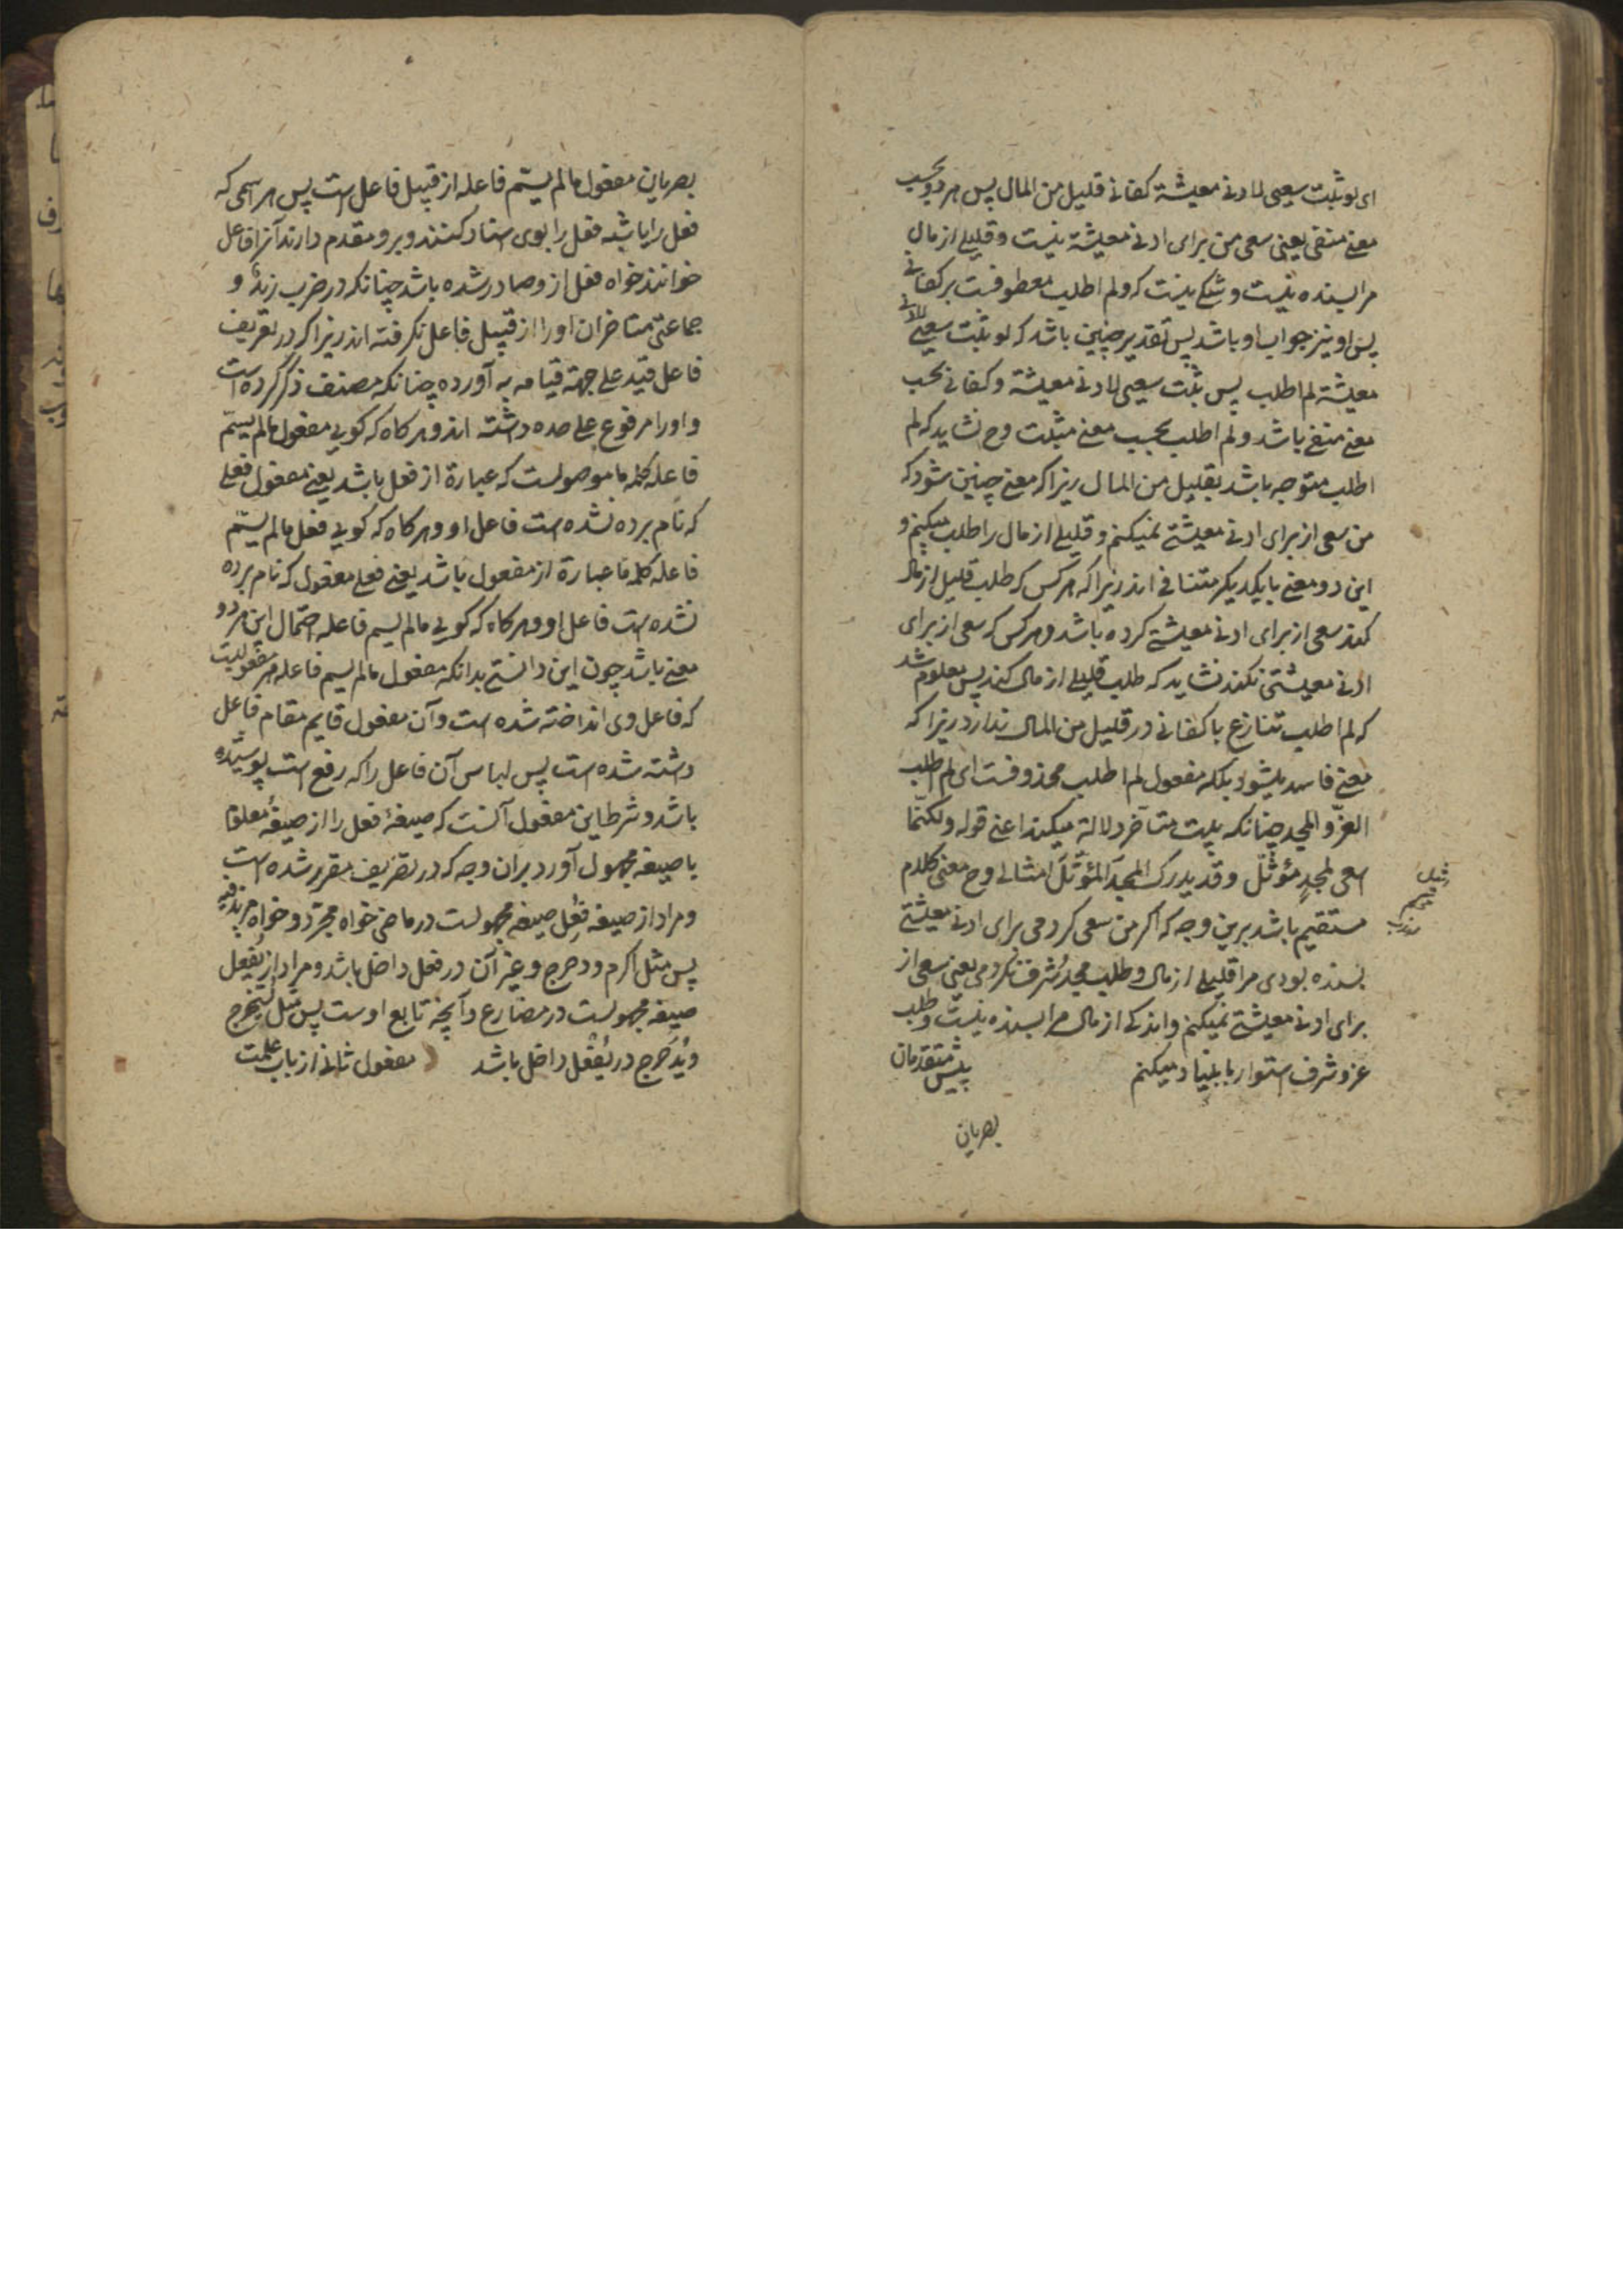 ای لو ثبت سعیی لادنی معیشة کفانی قلیل من المال پس هر دو بحسب
معنی منفی یعنی سعی من برای ادنی معیشة نیست و قلیلی از مال
مرا بسنده نیست و شکی نیست که و لم اطلب معطوفست بر کفانی
پس او نیز جواب او باشد پس تقدیر چنین باشد که لو ثبت سعیی لادنی
معیشة لم اطلب پس ثبت سعیی لادنی معیشة و کفانی بحسب
معنی منفی باشد و لم اطلب بحسب معنی مثبت وح نشاید که لم
اطلب متوجه باشد بقلیل من المال زیرا که معنی چنین شود که
من سعی از برای ادنی معیشتی نمیکنم و قلیلی از مال را طلب میکنم و
این دو معنی با یکدیکر متنافی اند زیرا که هر کس که طلب قلیل از مال
کند سعی از برای ادنی معیشتی کرده باشد و هر کس که سعی از برای
ادنی معیشتی نکند نشاید که طلب قلیلی از مال کند پس معلوم شد
که لم اطلب تنازع با کفانی در قلیل من المال ندارد زیرا که
معنی فاسد میشود بلکه مفعول لم اطلب محذوفست ای لم اطلب
العزّ و المجد چنانکه بیت متاخر دلالة میکند اعنی قوله ولکنّما
اسعی لمجدٍ مؤثّل وقد یدرک المجدَ المؤثّلَ امثالی وح معنی کلام
مستقیم باشد برین وجه که اکر من سعی کردمی برای ادنی معیشتی
بسنده بودی مرا قلیلی از مال و طلب مجد و شرف نکردمی یعنی سعی از
برای ادنی معیشتی نمیکنم و اندکی از مال مرا بسنده نیست و طلب
عز و شرف استوار با بنیاد میکنم پیش متقدمان
بصریان
بصریان مفعول مالم یسمّ فاعله از قبیل فاعل است پس هر اسمی که
فعل را یا شبه فعل را بوی اسناد کنند و برو مقدم دارند آنرا فاعل
خوانند خواه فعل ازو صادر شده باشد چنانکه در ضرب زید و
جماعتی متاخران او را از قبیل فاعل نکرفته اند زیرا که در تعریف
فاعل قید علی جهة قیامه به آورده چنانکه مصنف ذکر کرده است
و او را مرفوع علی حده داشته اند و هرکاه که کویی مفعول مالم یسمّ
فاعله کلمه ما موصولست که عبارة از فعل باشد یعنی مفعول فعلی
که نام برده نشده است فاعل او و هرکاه که کویی فعل مالم یسمّ
فاعله کلمه ما عبارة از مفعول باشد یعنی فعلی مفعول که نام برده
نشده است فاعل او و هرکاه که کویی مالم یسم فاعله احتمال این هر دو
معنی باشد چون این دانستی بدانکه مفعول مالم یسم فاعله هر مفعولیست
که فاعل وی انداخته شده است و آن مفعول قایم مقام فاعل
داشته شده است پس لباس آن فاعل را که رفع است پوشیده
باشد و شرط این مفعول آنست که صیغهٔ فعل را از صیغهٔ معلوم
با صیغه مجهول آورد بران وجه که در تصریف مقرر شده است
و مراد از صیغه فُعِل صیغه مجهولست در ماضی خواه مجرّد و خواه مزید فیه
پس مثل اکرم و دحرج و غیر آن در فعل داخل باشد و مراد از یُفعل
صیغه مجهولست در مضارع و آنچه تابع اوست پس مثل یُستخرج
و یُدَحرج در یُفعَل داخل باشد مفعول ثانی از باب علمت